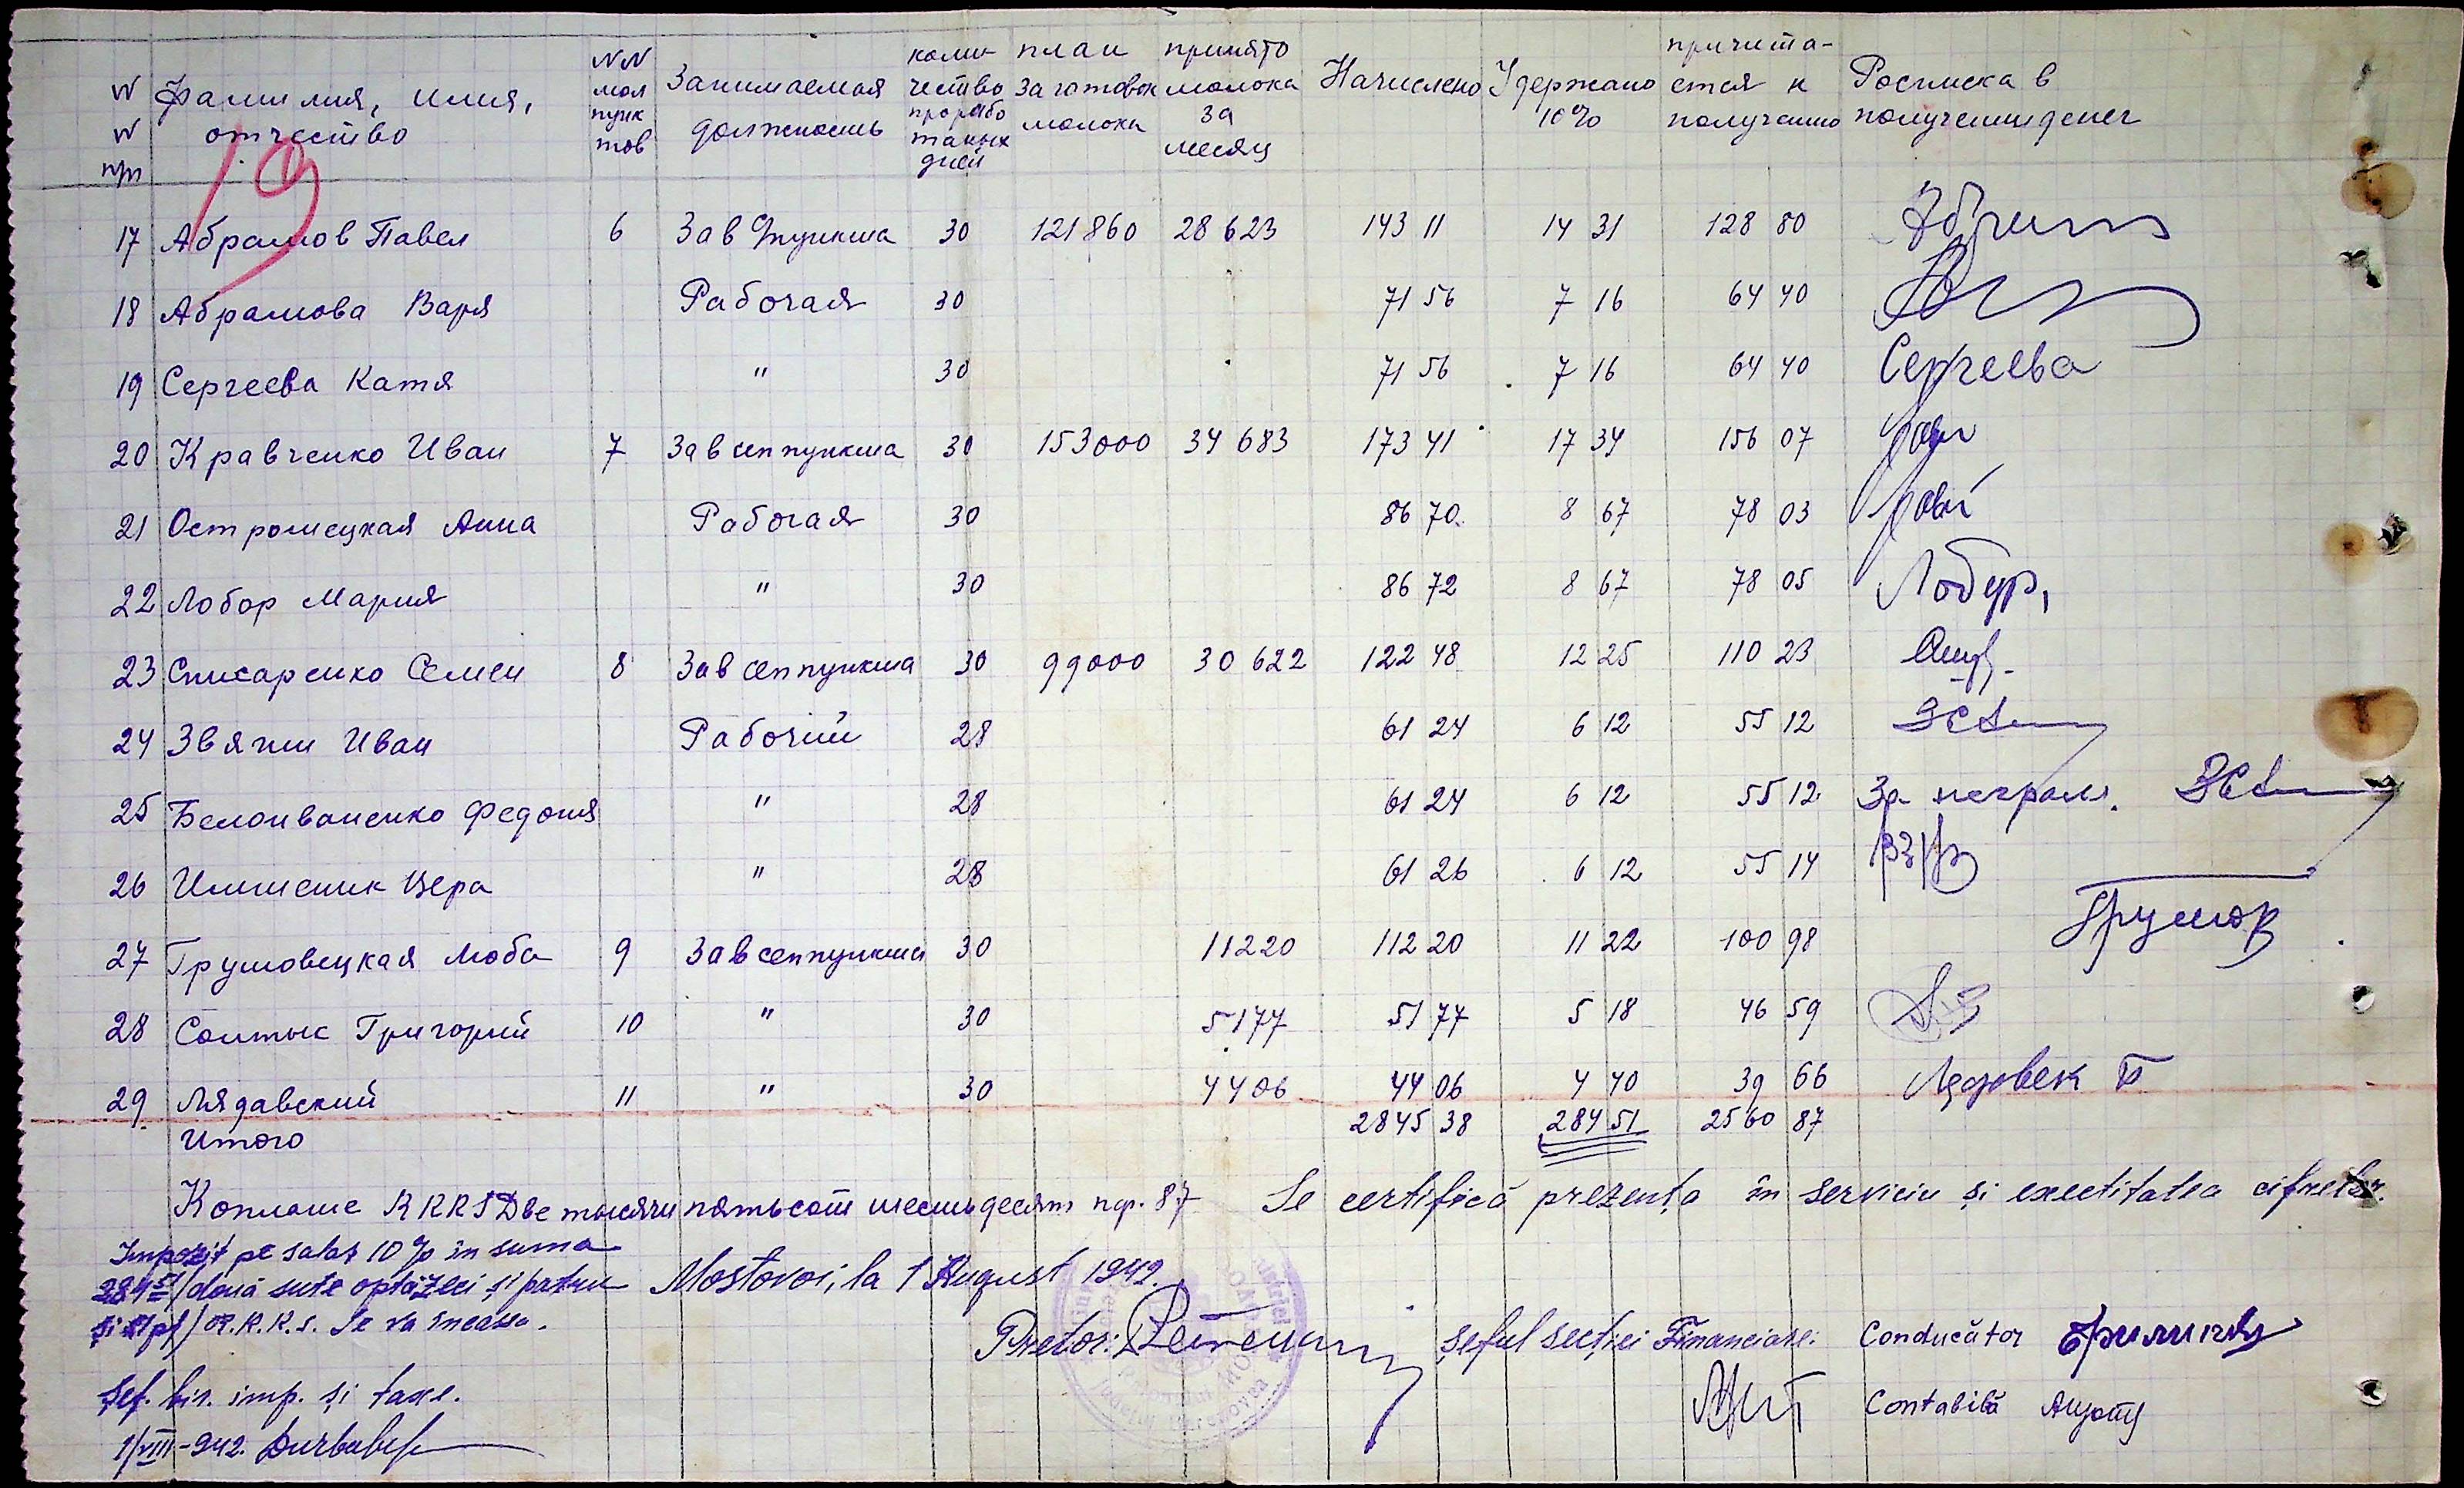 NN п/п Фамилия, имия, отчество NN мол пунк тов Занимаемая должность коли чество прорабо таных дней план заготовок молока принято молока за месяц Начислено Удержано 10% причита- ется к получению Росписка в получении денег
19
17 Абрамов Павел 6 Зав Фпункта 30 121860 28623 143 11 14 31 128 80
18 Абрамова Варя Рабочая 30 71 56 7 16 64 40
19 Сергеева Катя " 30 71 56 7 16 64 40 Сергеева
20 Кравченко Иван 7 Зав сеппункта 30 153000 34683 173 41 17 34 156 07
21 Остромецкая Анна Рабочая 30 86 70 8 67 78 03
22 Лобор Мария " 30 86 72 8 67 78 05 Лобур,
23 Списаренко Семен 8 Зав сеппункта 30 99000 30622 122 48 12 25 110 23
24 Звягин Иван Рабочий 28 61 24 6 12 55 12
25 Белоиваненко Федония " 28 61 24 6 12 55 12 За неграм.
26 Вера " 28 61 26 6 12 55 14
27 Грушовецкая Люба 9 Зав сеппункта 30 11220 112 20 11 22 100 98 Грушов
28 Солтык Григорий 10 " 30 5177 51 77 5 18 46 59
29. Лядавский 11 " 30 4406 44 06 4 40 39 66 Лядовск
Итого 2845 38 284 51 2560 87
К оплате RKKS Две тысячи пятьсот шестьдесят пф. 87
Se certifică prezența în serviciu și exectitatea cifrelor.
Impozit pe salar 10% în suma
284 51/două sute optăzeci și patru
și 51 pf/ R.K.K.S. Se va încasa.
Mostovoi, la 1 August 1942.
Pretor:
Șeful secției Financiare:
Conducător
Contabilă
Șef. bir. imp. și taxe.
1/VIII-942.